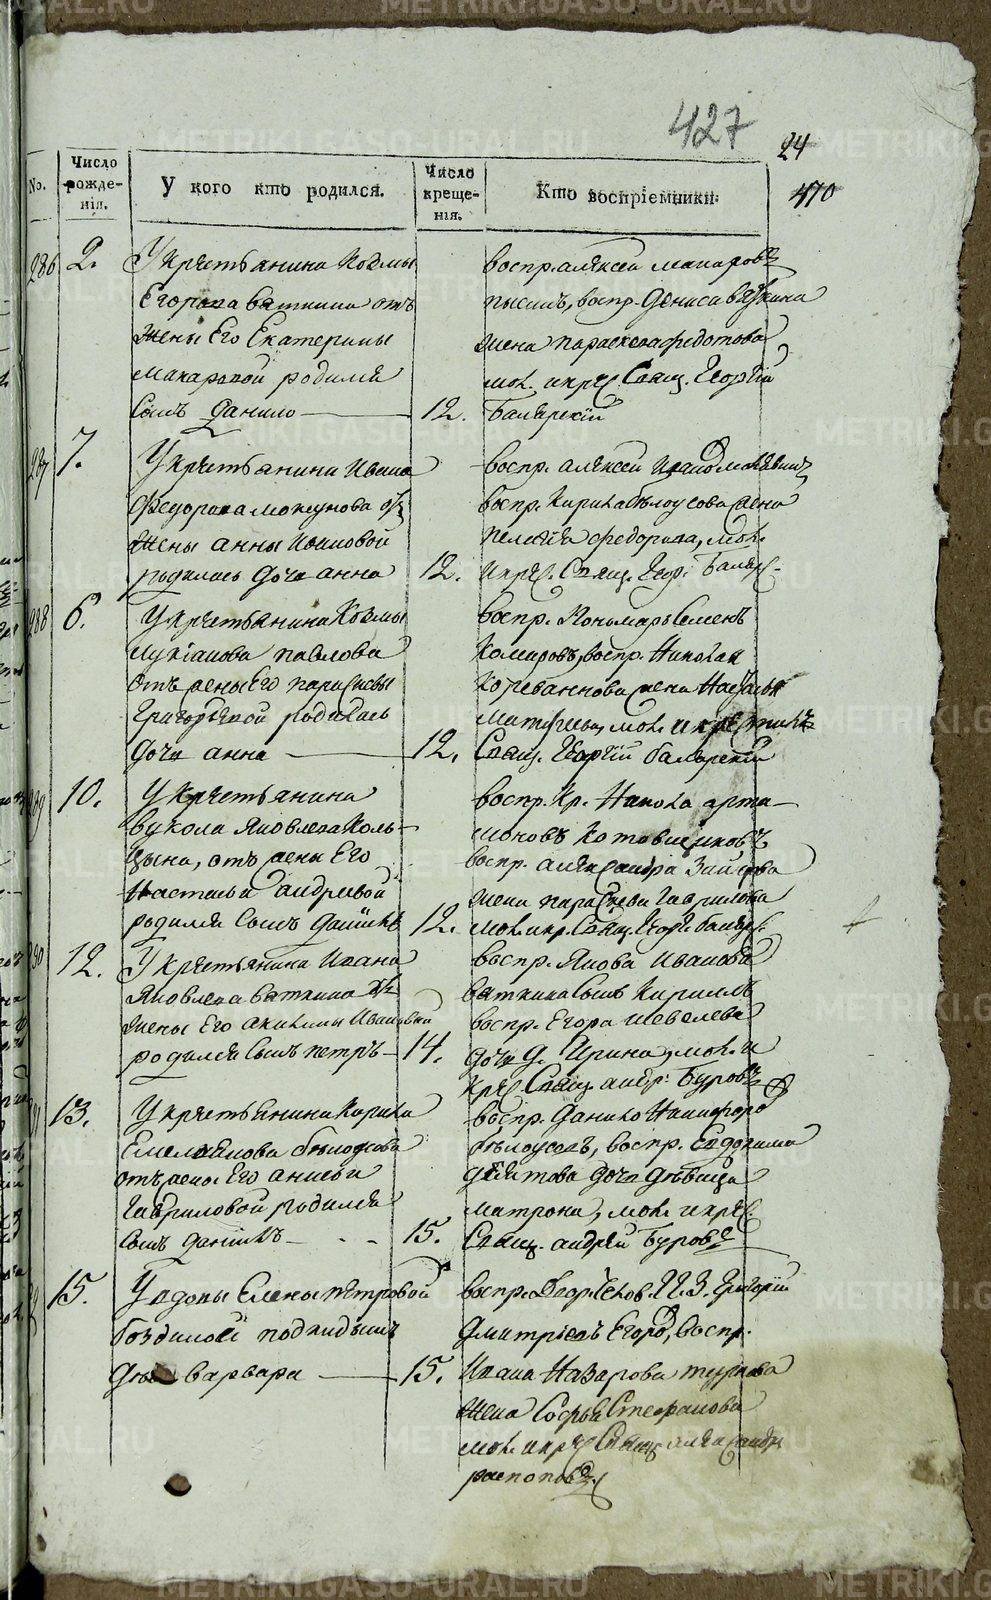 427
24
470
No.
Число рожденія.
У кого кто родился.
Число крещенія.
Кто воспріемники.
286 2.
У крестьянина Козмы
Егорова Вяткина отъ
жены Его Екатерины
Макаровой родился
сынъ Данило 12.
воспр. Алексей Макаровъ
воспр. Дениса Вяткина
жена Параскева Федотова
мол. и крес. Свящ. Георгій
Балярскій
287 7.
У крестьянина Ивана
Федорова отъ
жены Анны Ивановой
родилась дочь Анна 12.
воспр. Алексей
воспр. Кирила Белоусова жена
Пелагея Федорова, мол.
и крес. Свящ. Геор. Баляр.
288 6.
У крестьянина Козмы
Лукіанова Павлова
отъ жены Его Параскевы
Григорьевой родилась
дочь Анна 12.
воспр. Пономарь Семенъ
Комаровъ, воспр. Николая
жена Наталья
Матфиева, мол. и крестилъ
Свящ. Георгій Балярскій
289 10.
У крестьянина
Вукола Яковлева Коль-
цына, отъ жены Его
Настасьи Андреевой
родился сынъ Даніилъ 12.
воспр. Кр. Никола Арта-
моновъ Котовщиковъ
воспр. Александра Зайцова
жена Параскева Гаврилова
мол. и кр. Свящ. Георг. Баляр.
290 12.
У крестьянина Ивана
Яковлева Вяткина отъ
жены Его Акилины Ивановой
родился сынъ Петръ 14.
воспр. Якова Иванова
Вяткина сынъ Кириллъ
воспр. Егора Шевелева
дочь д. Ирина, мол. и
крес. Свящ. Андр. Буровъ
291 13.
У крестьянина Кирила
Емельянова Белоусова
отъ жены Его Анисьи
Гавриловой родился
сынъ Даніилъ 15.
воспр. Данило Никифоров
Белоусовъ, воспр. Евдокима
Девятова дочь девица
Матрона, мол. и крес.
Свящ. Андрей Буровъ
292 15.
У вдовы Елены Петровой
подкидышъ
Варвара 15.
воспр. Григорій
Дмитріевъ Егоров, воспр.
Ивана Назарова
жена Софья Стефанова
мол. и крес. Свящ. Александр
Распоповъ
METRIKI.GASO-URAL.RU